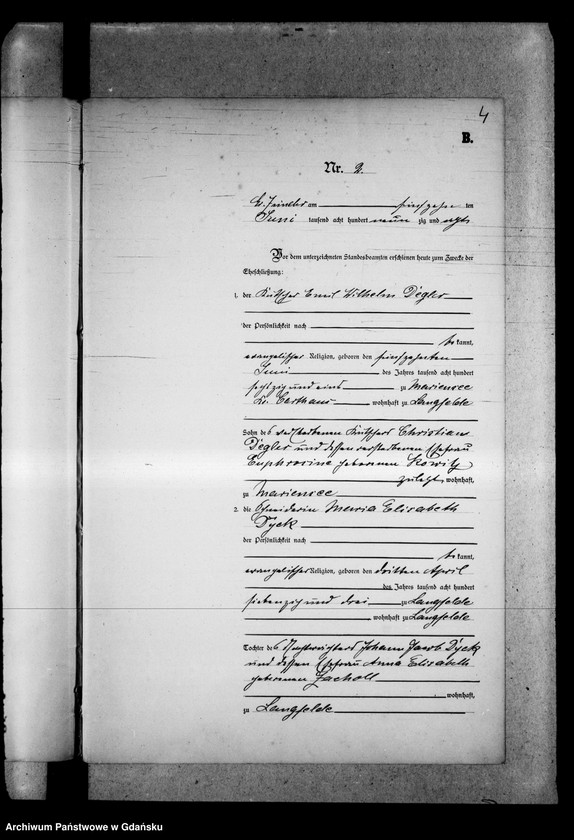 4
B.
Nr. 2.
am fünfzehn ten
Juni tausend acht hundert neun zig und acht
Vor dem unterzeichneten Standesbeamten erschienen heute zum Zwecke der
Eheschließung:
1. der Kutscher Emil Wilhelm Degler
der Persönlichkeit nach
be kannt,
evangelischer Religion, geboren den fünfzehnten
Juni des Jahres tausend acht hundert
sechzig und eins zu Mariensee
Kr. Carthaus wohnhaft zu Langfelde
Sohn des verstorbenen Kutschers Christian
Degler und dessen verstorbenen Ehefrau
Euphrosine geborenen
zuletzt wohnhaft,
zu Mariensee
2. die Schneiderin Maria Elisabeth
Dyck
der Persönlichkeit nach
be kannt,
evangelischer Religion, geboren den dritten April
des Jahres tausend acht hundert
siebenzig und drei zu Langfelde
wohnhaft zu Langfelde
Tochter des Johann Jacob Dyck
und dessen Ehefrau Anna Elisabeth
geborenen Zacholl
wohnhaft,
zu Langfelde
Archiwum Państwowe w Gdańsku